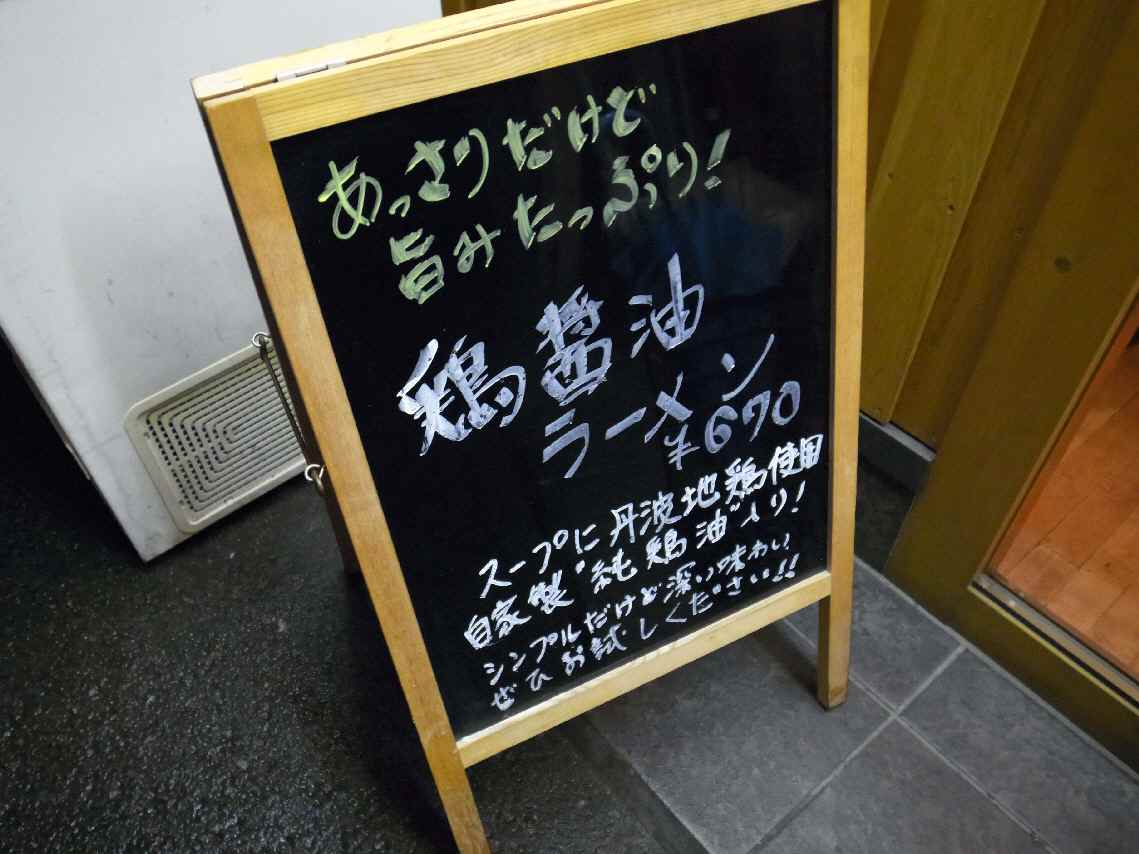 あっさりだけど
旨みたっぷり！
鶏醤油
ラーメン
¥670
スープに丹波地鶏使用
自家製"純鶏油"入り！
シンプルだけど深い味わい
ぜひお試しください!!